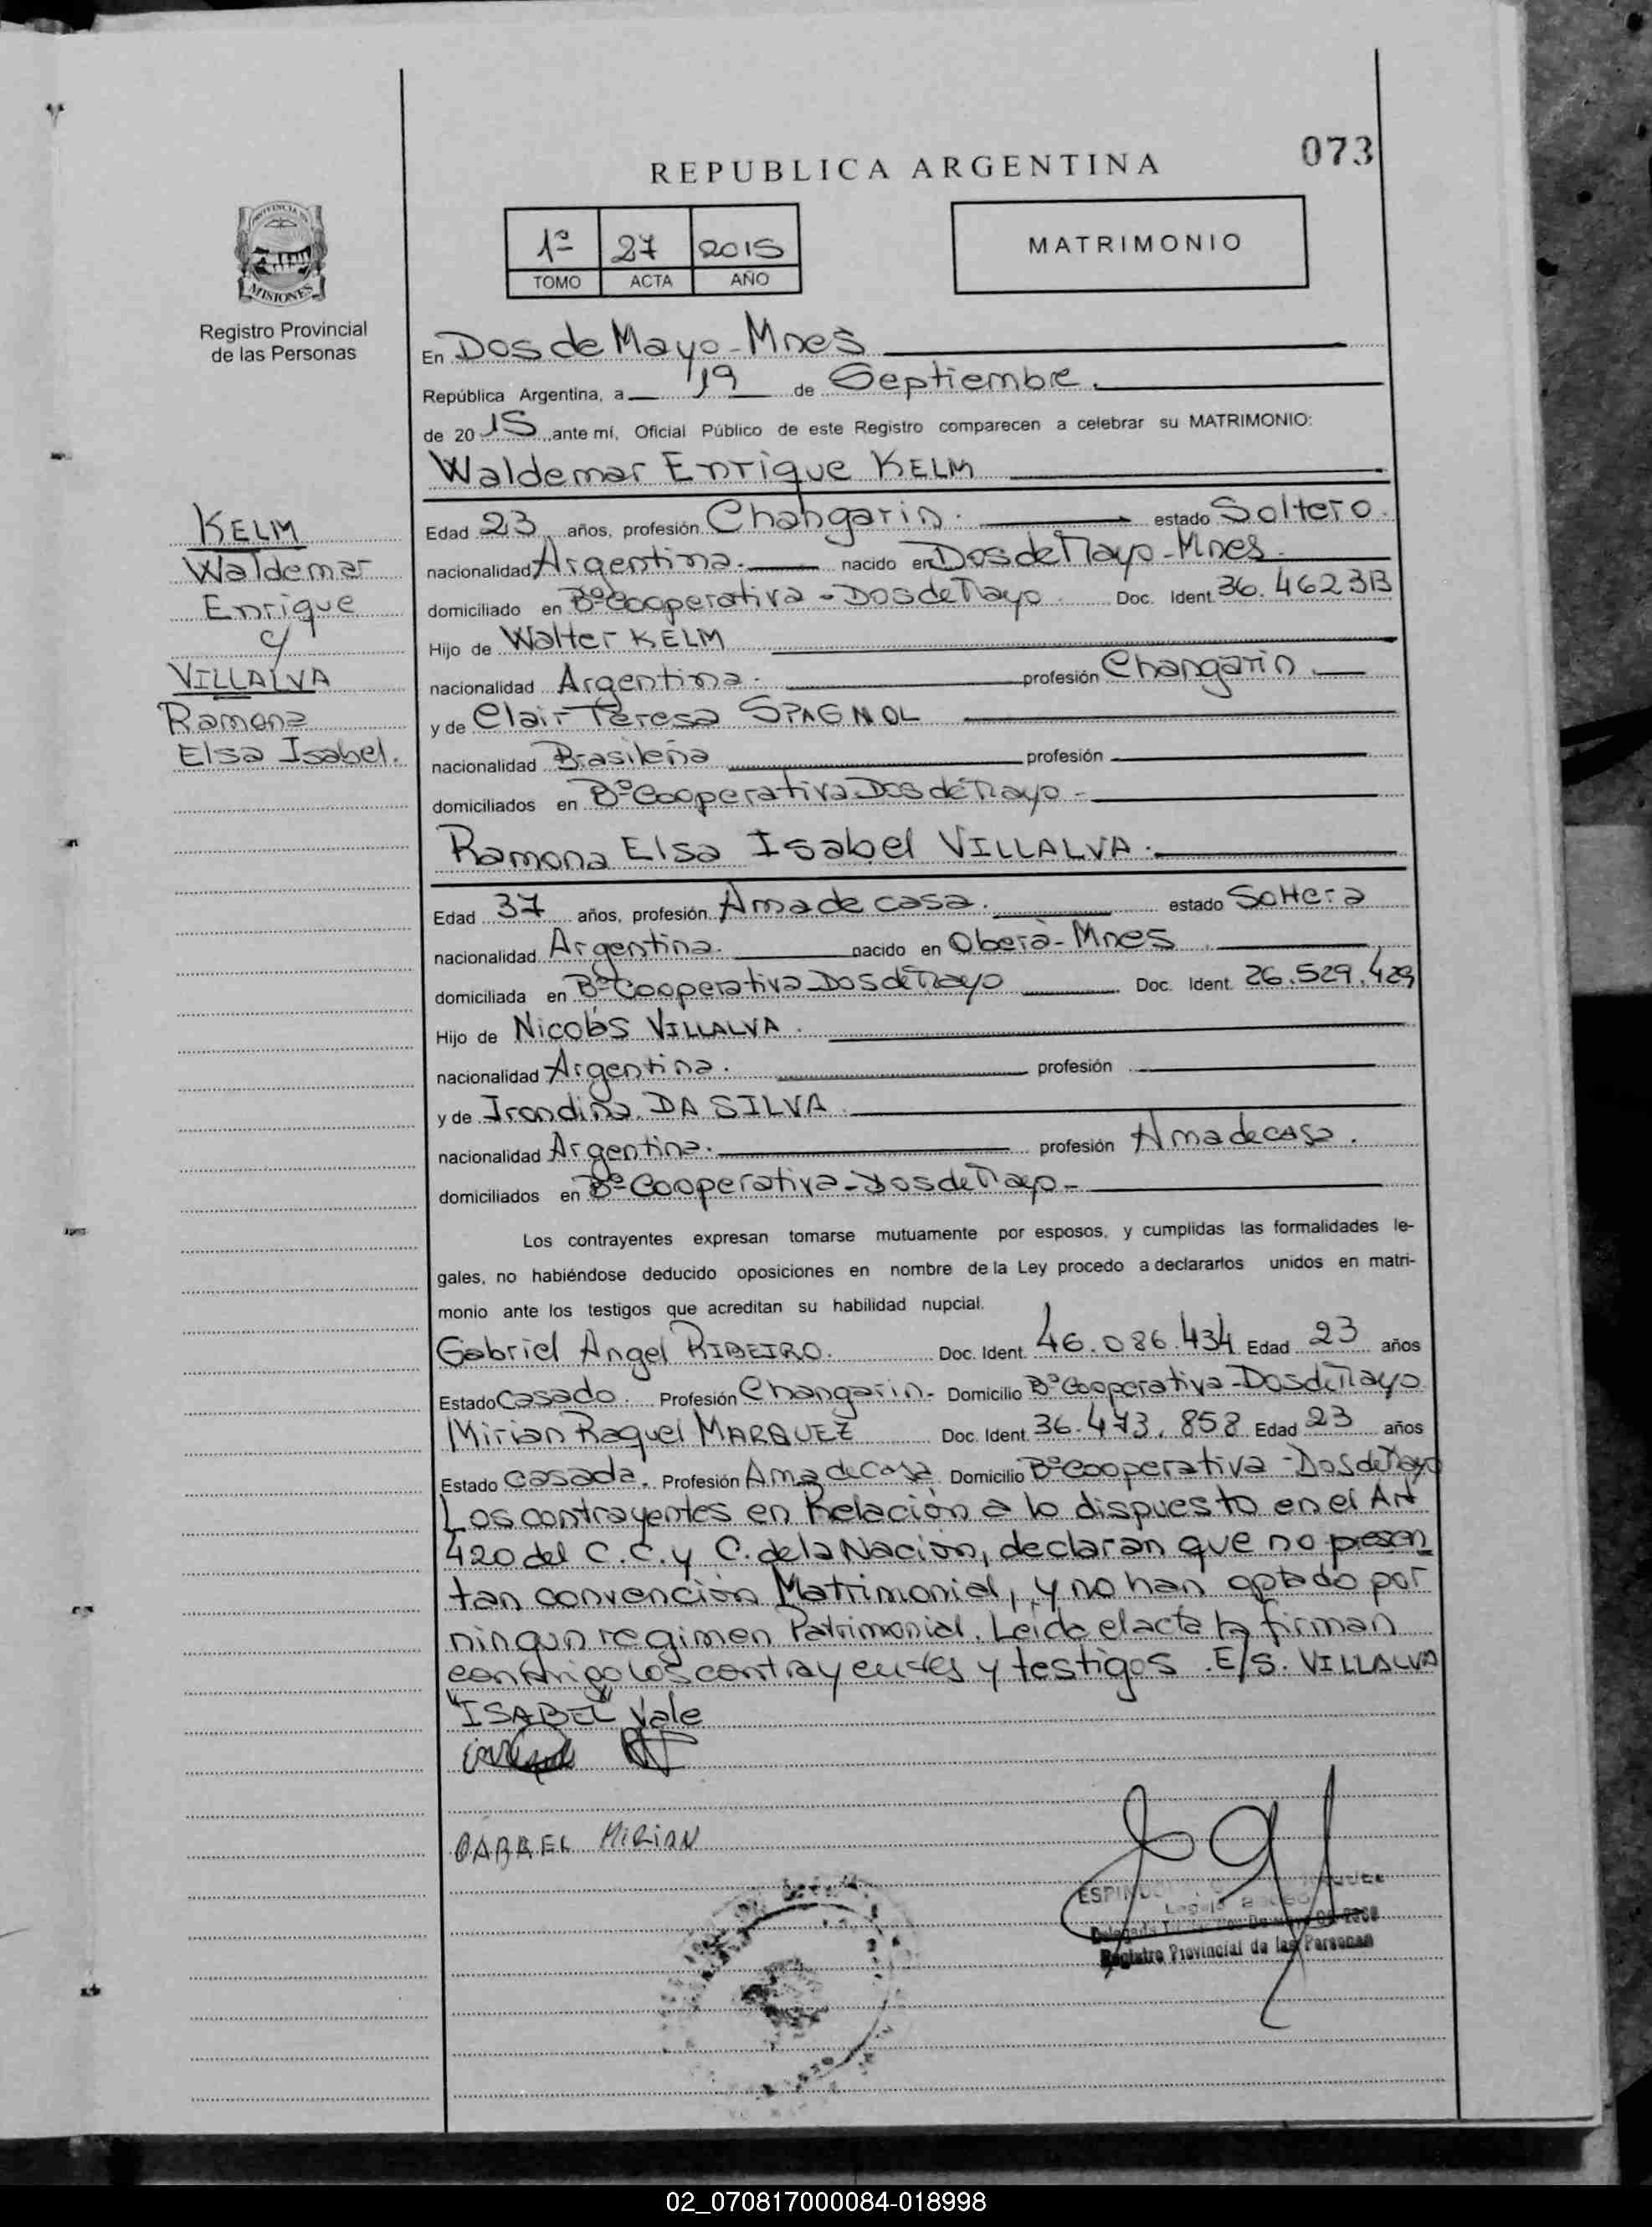 073
REPUBLICA ARGENTINA
PROVINCIA DE
MISIONES
Registro Provincial
de las Personas
1º 27 2015
TOMO ACTA AÑO
MATRIMONIO
En Dos de Mayo - Mnes
República Argentina, a 19 de Septiembre.
de 2015 ante mí, Oficial Público de este Registro comparecen a celebrar su MATRIMONIO:
Waldemar Enrique KELM
KELM
Waldemar
Enrique
y
VILLALVA
Ramona
Elsa Isabel.
Edad 23 años, profesión Changarin. estado Soltero.
nacionalidad Argentina. nacido en Dos de Mayo - Mnes.
domiciliado en Bº Cooperativa - Dos de Mayo Doc. Ident. 36.462313
Hijo de Walter KELM
nacionalidad Argentina. profesión Changarin.
y de Clair Teresa SPAGNOL
nacionalidad Brasileña profesión
domiciliados en Bº Cooperativa Dos de Mayo -
Ramona Elsa Isabel VILLALVA.
Edad 37 años, profesión Ama de casa. estado Soltera
nacionalidad Argentina. nacido en Oberà - Mnes
domiciliada en Bº Cooperativa Dos de Mayo Doc. Ident. 26.529.429
Hijo de Nicolàs VILLALVA.
nacionalidad Argentina. profesión
y de Irondina DA SILVA
nacionalidad Argentina. profesión Ama de casa.
domiciliados en Bº Cooperativa - Dos de Mayo -
Los contrayentes expresan tomarse mutuamente por esposos, y cumplidas las formalidades le-
gales, no habiéndose deducido oposiciones en nombre de la Ley procedo a declararlos unidos en matri-
monio ante los testigos que acreditan su habilidad nupcial.
Gabriel Angel RIBEIRO. Doc. Ident. 46.086.434 Edad 23 años
Estado Casado. Profesión Changarin - Domicilio Bº Cooperativa - Dos de Mayo
Mirian Raquel MARQUEZ Doc. Ident. 36.473.858 Edad 23 años
Estado Casada. Profesión Ama de Casa Domicilio Bº Cooperativa - Dos de Mayo
Los contrayentes en Relación a lo dispuesto en el Art
420 del C.C. y C. de la Nación, declaran que no presen
tan convención Matrimonial, y no han optado por
ningun regimen Patrimonial. Leida el acta la firman
conmigo los contrayentes y testigos. E/S. VILLALVA
"ISABEL" Vale
GABREL MIRIAN
Registro Provincial de las Personas
02_070817000084-018998